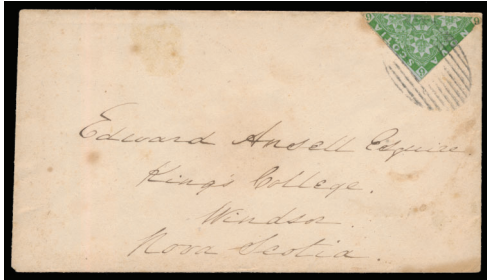 Edward Ansell Esquire
King's College.
Windsor.
Nova Scotia.